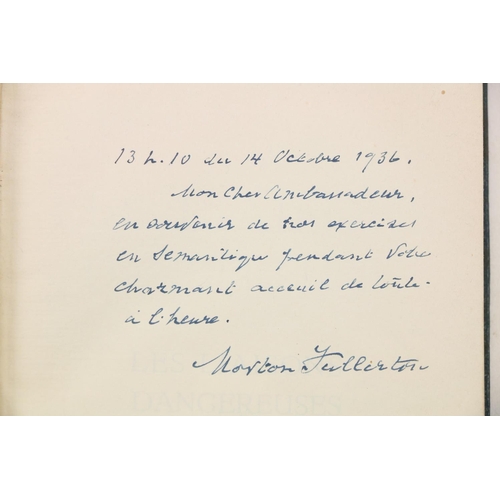 13 h. 10 du 14 Octobre 1936.
Mon Cher Ambassadeur,
en souvenir de nos exercises
en Semantique pendant votre
charmant acceuil de toute-
à l'heure.
Morton Fullerton
DANGEREUSES